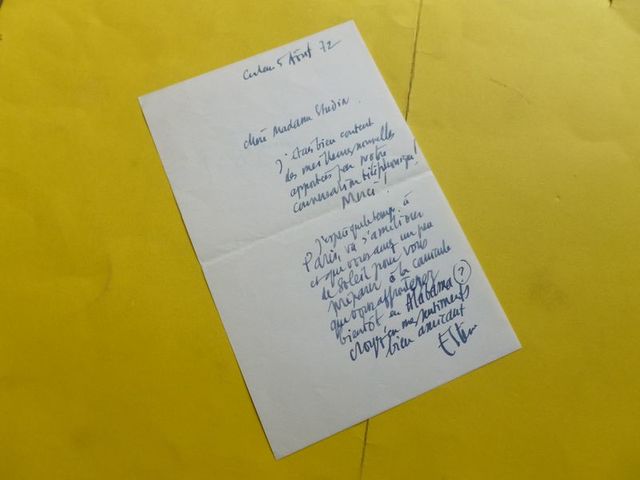 5 Août 72
Chère Madame
J'étais bien content
des meilleures nouvelles
apportées par notre
conversation téléphonique!
Merci!
J'espère que le temps à
Paris va s'améliorer
et que vous aurez un peu
de soleil pour vous
préparer à la canicule
que vous affronterez
bientôt en Alabama (?)
croyez en mes sentiments
bien amicaux